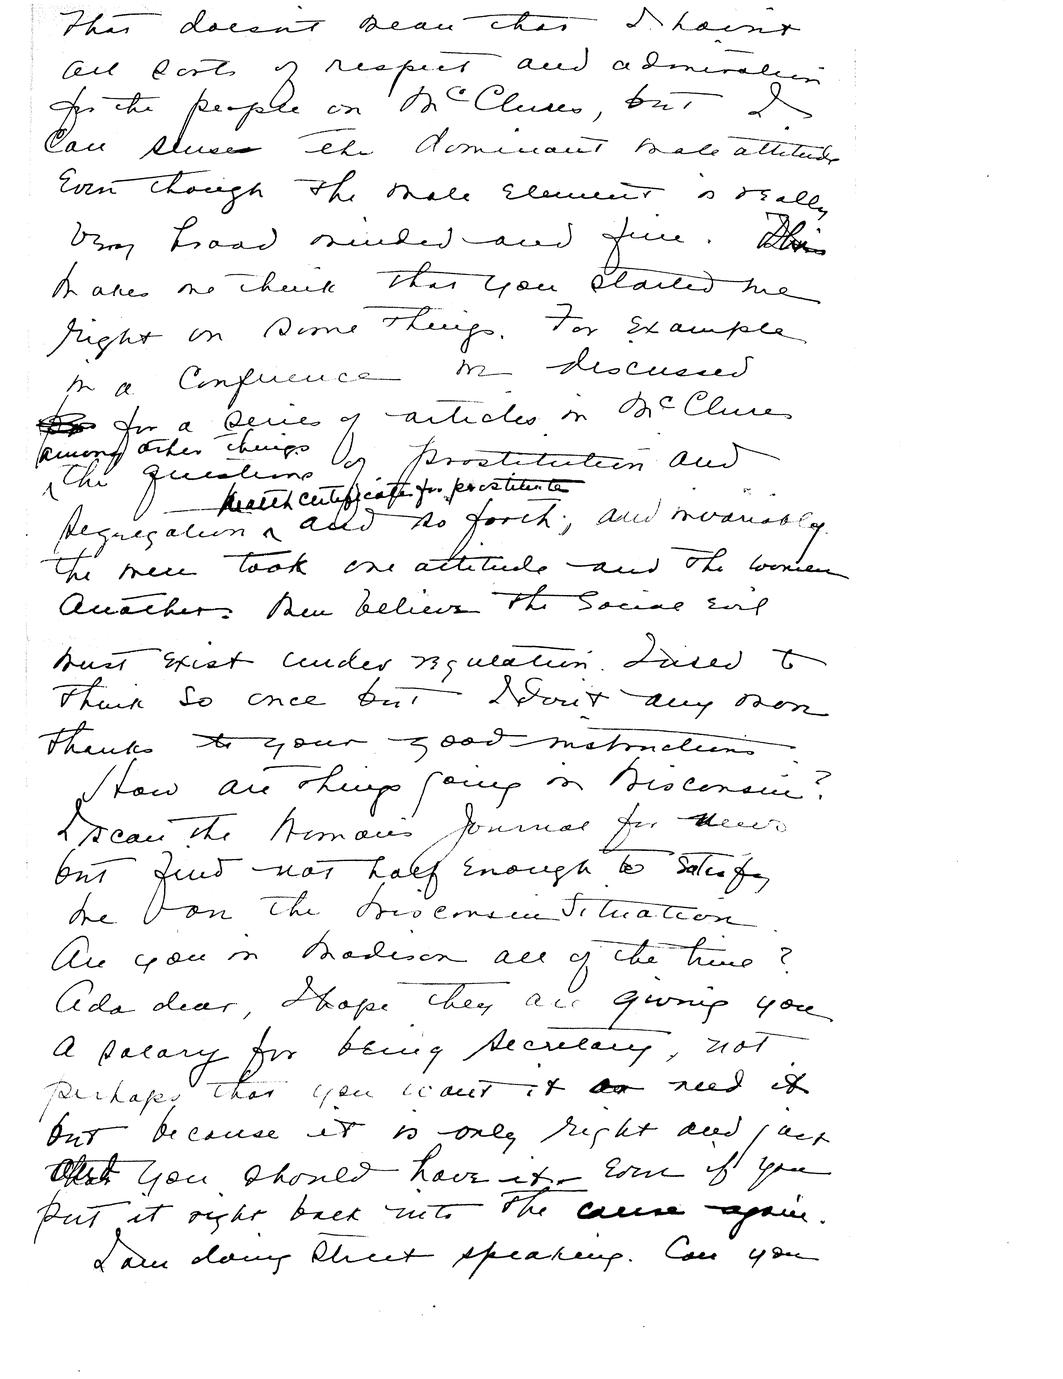 That doesn't mean that I haven't
all sorts of respect and admiration
for the people on McClures, but I
can sense the dominant male attitude
Even though the male element is really
very broad minded and fine. This
makes me think that you started me
right on some things. For example
in a conference we discussed
for a series of articles in McClures
among other things
the questions of prostitution and
health certificate for prostitute
segregation and so forth; and invariably
the men took one attitude and the women
another: Men believe the Social Evil
must exist under regulation. I used to
think so once but I don't any more
thanks to your good instructions.
How are things going in Wisconsin?
I scan the Woman's Journal for news
but find not half enough to satisfy
me on the Wisconsin Situation
Are you in Madison all of the time?
Ada dear, I hope they are giving you
a salary for being secretary, not
perhaps that you want it or need it
but because it is only right and just
that you should have it - Even if you
put it right back into the cause again.
I am doing street speaking. Can you